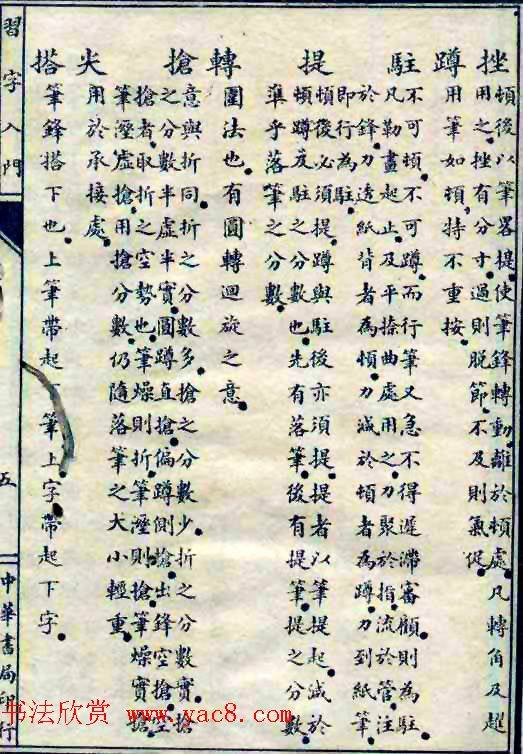 挫 頓後以筆畧提。使筆鋒轉動。離於頓處。凡轉角及趯
用之。挫有分寸。過則脫節。不及則氣促。
蹲 用筆如頓。持不重按。
駐 不可頓。不可蹲。而行筆又急不得遲滯審顧。則為駐。
凡勒畫起止。及平捺曲處用之。力聚於指。流於管。注
於鋒。力透紙背者為頓。力減於頓者為蹲。力到紙筆
即行為駐。
提 頓後必須提。蹲與駐後亦須提。提者以筆提起。減於
頓蹲及駐之分數也。先有落筆。後有提筆。提之分數。
準乎落筆之分數。
轉 圓法也。有圓轉迴旋之意。
搶 意與折同。折之分數多。搶之分數少。折之分數實。搶
之分數半虛半實。圓蹲直搶。偏蹲側搶。出鋒空搶。空
搶者。取折之空勢也。筆燥則折。筆溼則搶。筆燥實搶。
筆溼虛搶。用搶分數。仍隨落筆之大小輕重。
尖 用於承接處。
搭 筆鋒搭下也。上筆帶起下筆。上字帶起下字。
習字入門
五
中華書局印行
书法欣赏 www.yac8.com